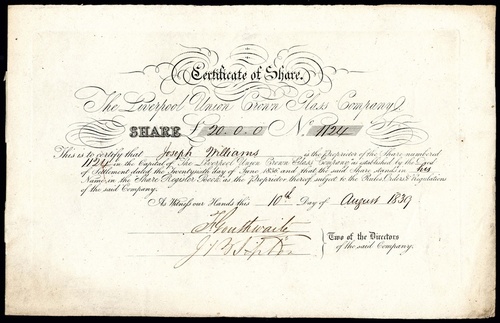 Certificate of Share.
The Liverpool Union Crown Glass Company
SHARE £ 20.0.0 No. 1124
This is to certify that Joseph Williams is the Proprietor of the Share numbered
1124 in the Capital of The Liverpool Union Crown Glass Company established by the Deed
of Settlement dated the Twentyninth day of June 1836 and that the said Share stands in his
Name in the Share Register Book as the Proprietor thereof subject to the Rules, Orders & Regulations
of the said Company.
As Witness our Hands this 10th Day of August 1839
Two of the Directors
of the said Company.